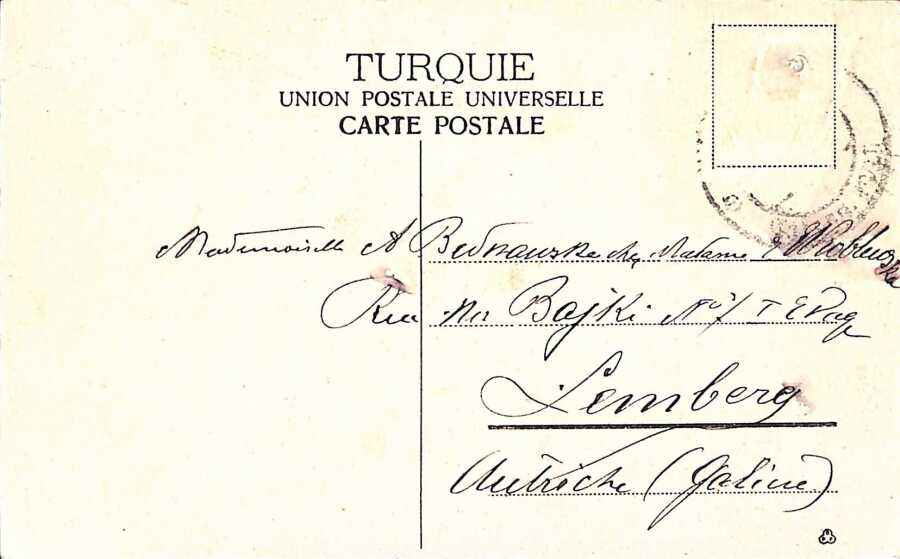 TURQUIE
UNION POSTALE UNIVERSELLE
CARTE POSTALE
Mademoiselle A Bednawska chez Madame Wroblewska
Rue na Bajki No 7 I Etag
Lemberg
Autriche (Galicie)